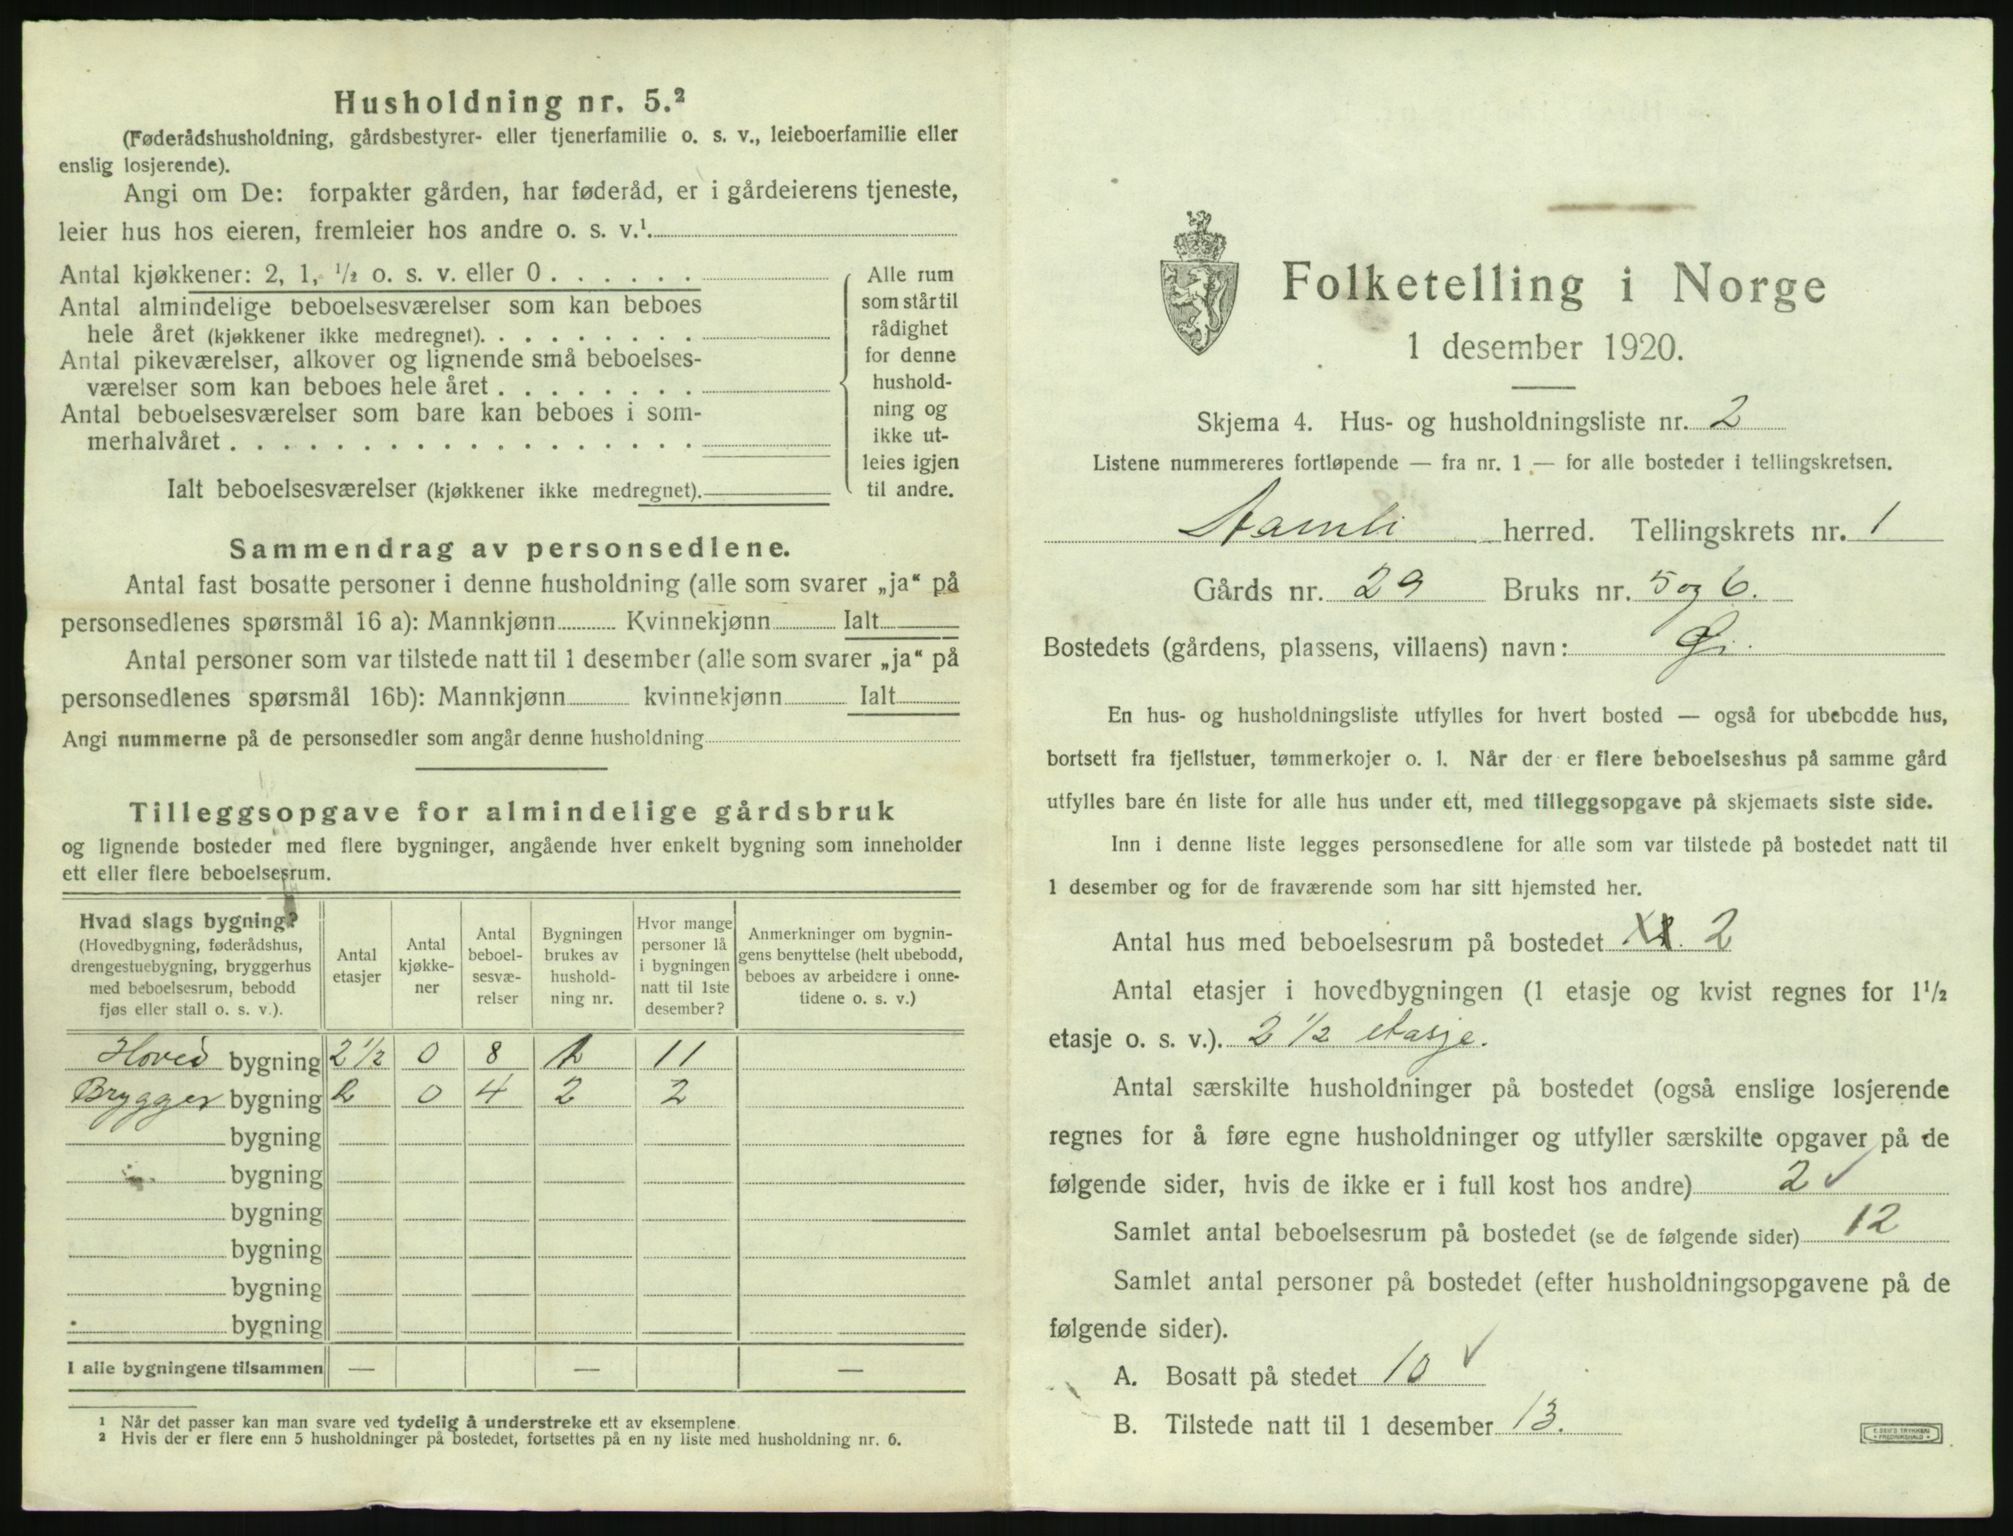 Husholdning nr. 5.²
(Føderådshusholdning, gårdsbestyrer- eller tjenerfamilie o. s. v., leieboerfamilie eller
enslig losjerende).
Angi om De: forpakter gården, har føderåd, er i gårdeierens tjeneste,
leier hus hos eieren, fremleier hos andre o. s. v.¹.
Antal kjøkkener: 2, 1, ½ o. s. v. eller 0 . . . . . .
Antal almindelige beboelsesværelser som kan beboes
hele året (kjøkkener ikke medregnet). . . . . . . . .
Antal pikeværelser, alkover og lignende små beboelses-
værelser som kan beboes hele året . . . . . . . .
Antal beboelsesværelser som bare kan beboes i som-
merhalvåret . . . . . . . . . . . . . . . . . .
Ialt beboelsesværelser (kjøkkener ikke medregnet).
Alle rum
som står til
rådighet
for denne
hushold-
ning og
ikke ut-
leies igjen
til andre.
Sammendrag av personsedlene.
Antal fast bosatte personer i denne husholdning (alle som svarer „ja“ på
personsedlenes spørsmål 16 a): Mannkjønn Kvinnekjønn Ialt
Antal personer som var tilstede natt til 1 desember (alle som svarer „ja“ på
personsedlenes spørsmål 16b): Mannkjønn kvinnekjønn Ialt
Angi nummerne på de personsedler som angår denne husholdning
Tilleggsopgave for almindelige gårdsbruk
og lignende bosteder med flere bygninger, angående hver enkelt bygning som inneholder
ett eller flere beboelsesrum.
Hvad slags bygning?
(Hovedbygning, føderådshus,
drengestuebygning, bryggerhus
med beboelsesrum, bebodd
fjøs eller stall o. s. v.).
Antal
etasjer
Antal
kjøkke-
ner
Antal
beboel-
sesvæ-
relser
Bygningen
brukes av
hushold-
ning nr.
Hvor mange
personer lå
i bygningen
natt til 1ste
desember?
Anmerkninger om bygnin-
gens benyttelse (helt ubebodd,
beboes av arbeidere i onne-
tidene o. s. v.)
Hoved bygning 2 ½ 0 8 1 11
Brygger bygning 2 0 4 2 2
bygning
bygning
bygning
bygning
bygning
bygning
I alle bygningene tilsammen — — —
¹ Når det passer kan man svare ved tydelig å understreke ett av eksemplene.
² Hvis der er flere enn 5 husholdninger på bostedet, fortsettes på en ny liste med husholdning nr. 6.
Folketelling i Norge
1 desember 1920.
Skjema 4. Hus- og husholdningsliste nr. 2
Listene nummereres fortløpende — fra nr. 1 — for alle bosteder i tellingskretsen.
Aamli herred. Tellingskrets nr. 1
Gårds nr. 29 Bruks nr. 5 og 6.
Bostedets (gårdens, plassens, villaens) navn: Øi.
En hus- og husholdningsliste utfylles for hvert bosted — også for ubebodde hus,
bortsett fra fjellstuer, tømmerkojer o. l. Når der er flere beboelseshus på samme gård
utfylles bare én liste for alle hus under ett, med tilleggsopgave på skjemaets siste side.
Inn i denne liste legges personsedlene for alle som var tilstede på bostedet natt til
1 desember og for de fraværende som har sitt hjemsted her.
Antal hus med beboelsesrum på bostedet 2
Antal etasjer i hovedbygningen (1 etasje og kvist regnes for 1½
etasje o. s. v.). 2 ½ etasje.
Antal særskilte husholdninger på bostedet (også enslige losjerende
regnes for å føre egne husholdninger og utfyller særskilte opgaver på de
følgende sider, hvis de ikke er i full kost hos andre) 2 ✓
Samlet antal beboelsesrum på bostedet (se de følgende sider) 12
Samlet antal personer på bostedet (efter husholdningsopgavene på de
følgende sider).
A. Bosatt på stedet 10 ✓
B. Tilstede natt til 1 desember 13.